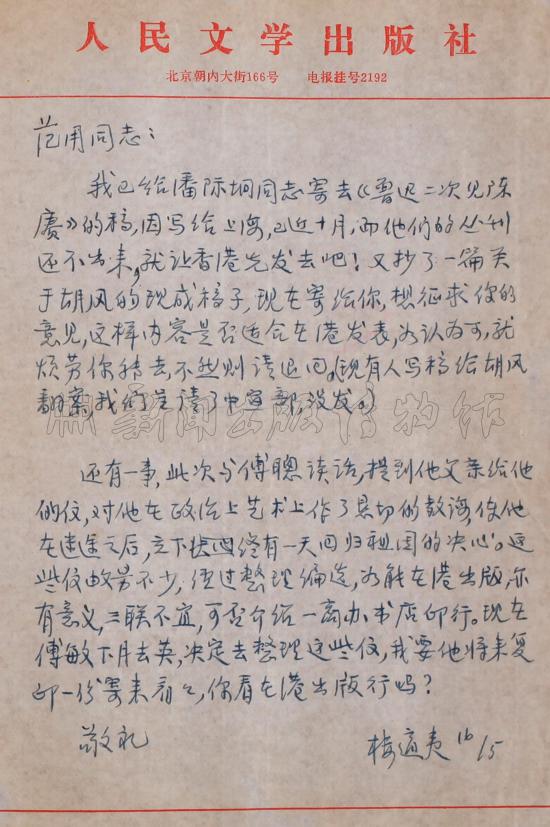 人民文学出版社
北京朝内大街166号 电报挂号2192
范用同志：
我已给潘际坰同志寄去《鲁迅二次见陈
赓》的稿，因写给上海，已近十月，而他们的丛刊
还不出来，就让香港先发去吧！又抄了一篇关
于胡风的现成稿子，现在寄给你，想征求你的
意见，这样内容是否适合在港发表，如认为可，就
烦劳你转去，不然则请退回。（现有人写稿给胡风
翻案，我们呈请了中宣部，没发。）
还有一事，此次与傅聪谈话，提到他父亲给他
的信，对他在政治上艺术上作了恳切的教诲，使他
在迷途之后，立下终有一天回归祖国的决心。这
些信数量不少，经过整理编选，如能在港出版，亦
有意义，三联不宜，可否介绍一离办书店印行。现在
傅敏下月去英，决定去整理这些信，我要他将来复
印一份寄来看看，你看在港出版行吗？
敬礼
楼适夷 16/5
新闻出版博物馆